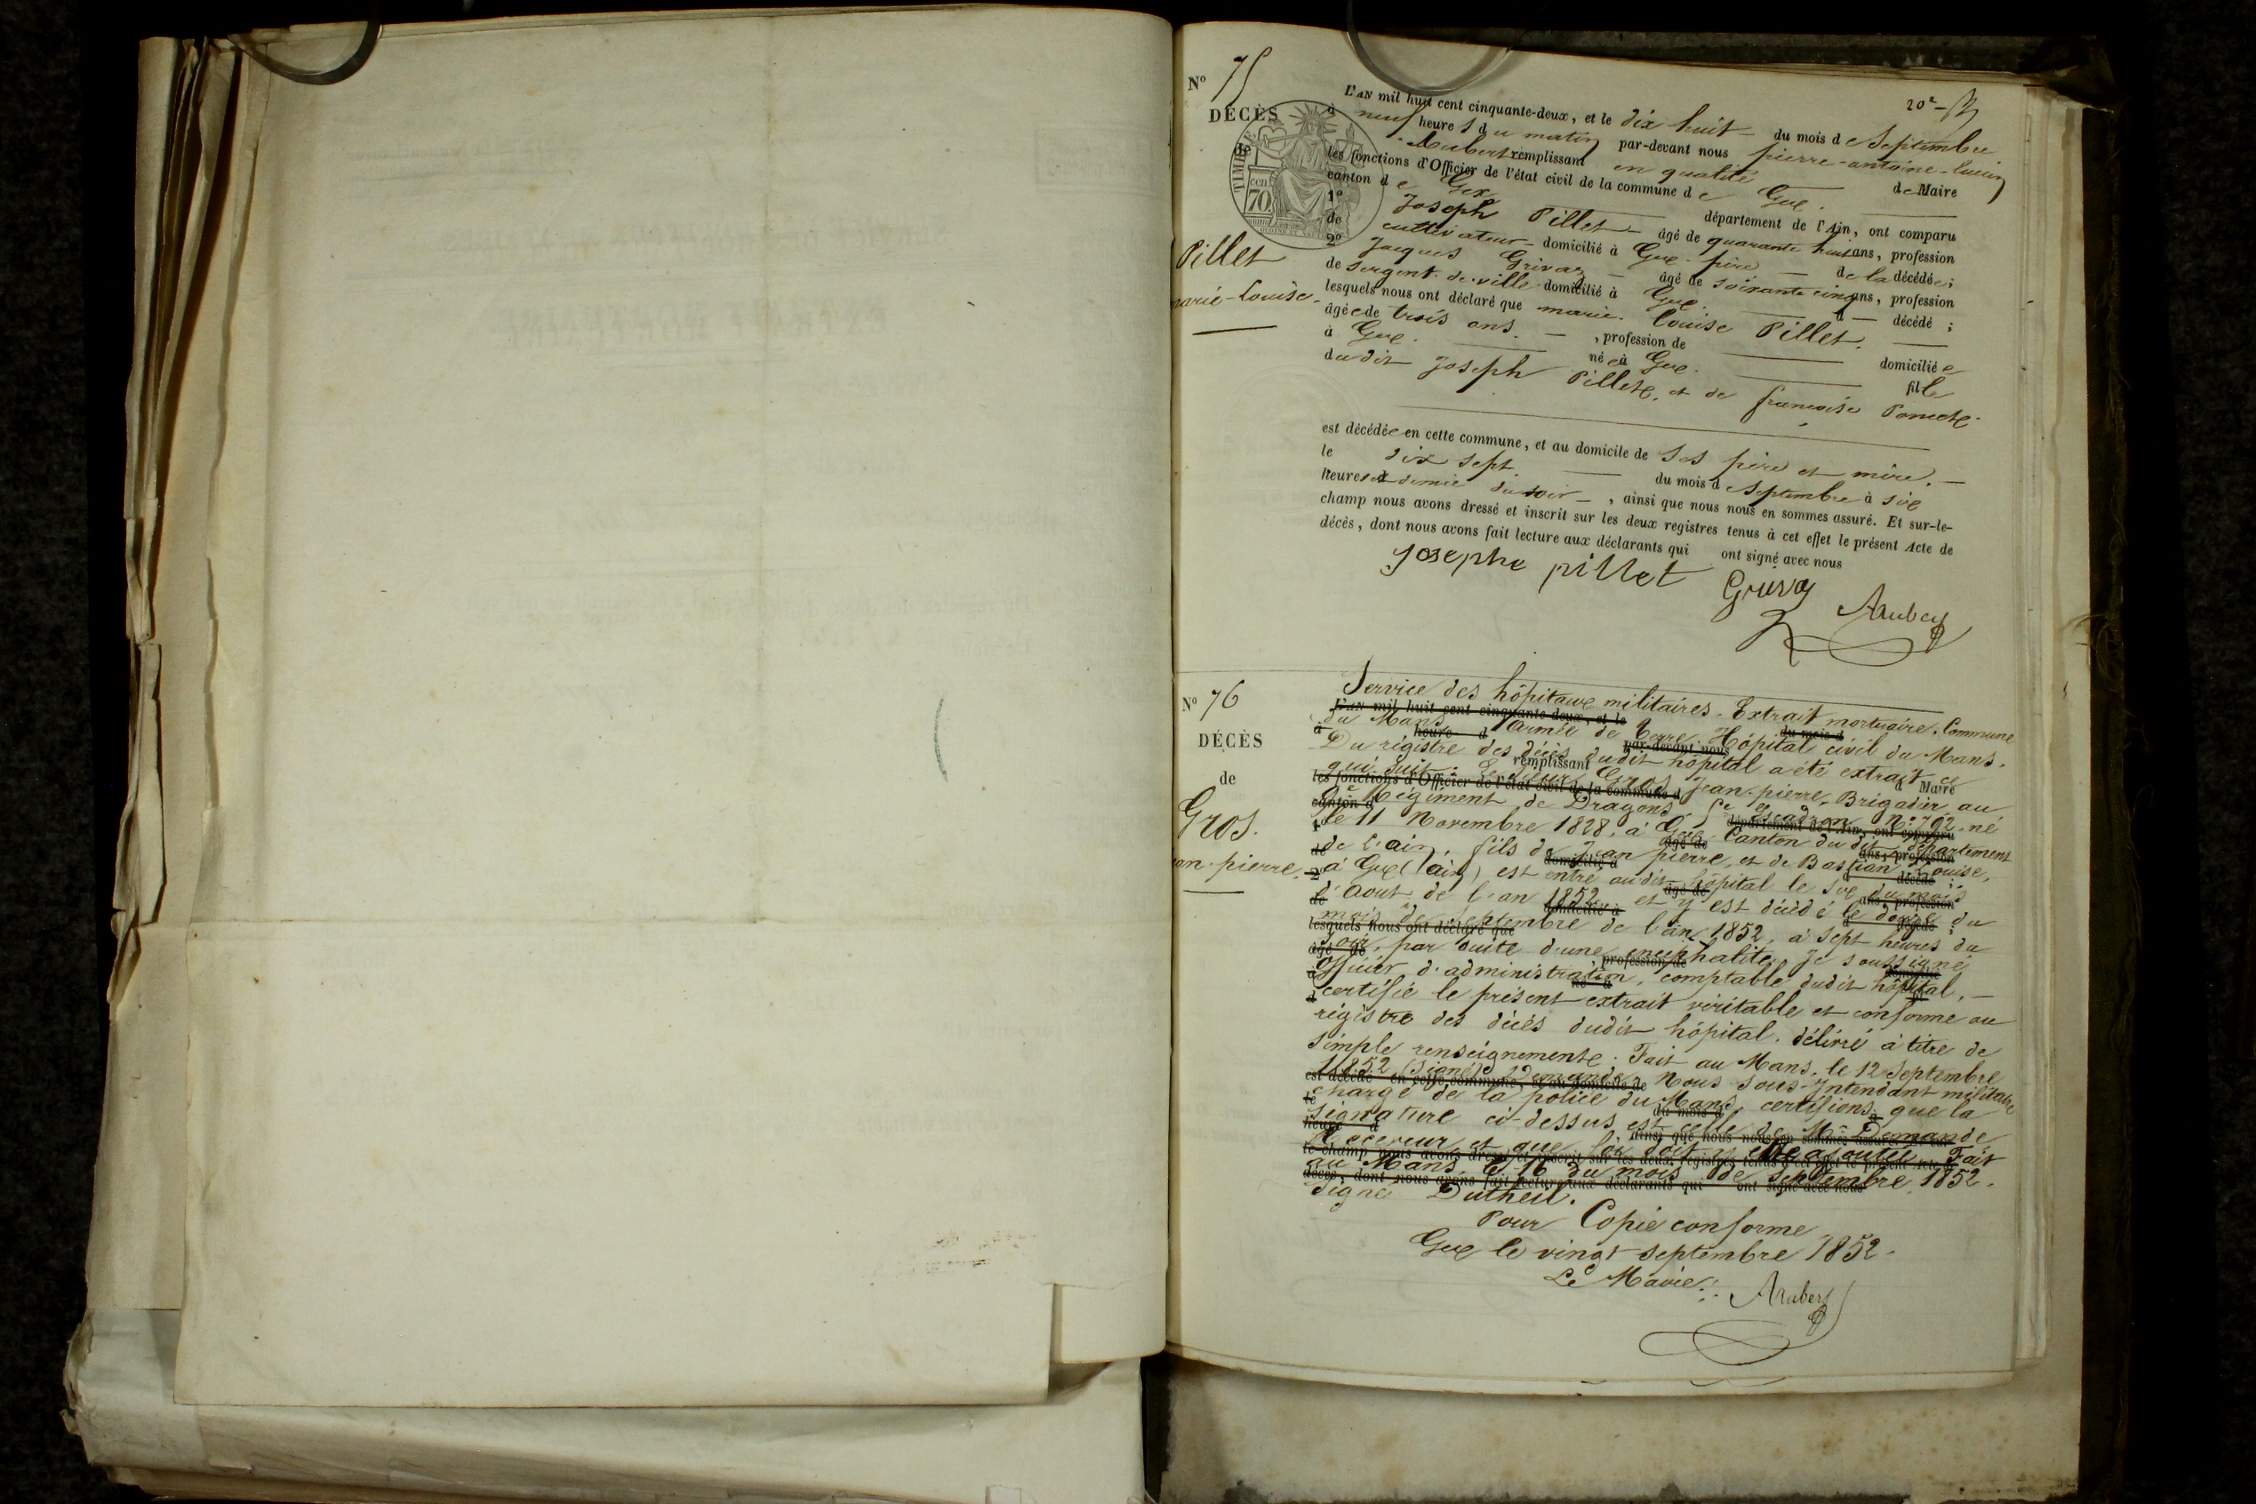 20e
N° 75
DÉCÈS
de
Pillet
marie-Louise.
TIMBRE
cen
70.
L'AN mil huit cent cinquante-deux, et le dix huit du mois de Septembre
à neuf heures du matin par-devant nous pierre-antoine-lucien
Aubert remplissant en qualité de Maire
les fonctions d'Officier de l'état civil de la commune de Gex.
canton de Gex département de l'Ain, ont comparu
1° Joseph Pillet âgé de quarante huit ans, profession
de cultivateur domicilié à Gex. père de la décédée;
2° Jacques Grivaz âgé de soixante cinq ans, profession
de sergent de ville domicilié à Gex d décédé ;
lesquels nous ont déclaré que marie. Louise Pillet.
âgée de trois ans. , profession de domiciliée
à Gex. née à Gex. fille
du dit Joseph Pillet, et de françoise
est décédée en cette commune, et au domicile de ses père et mère.
le dix sept. du mois de Septembre à six
heures et demie du soir , ainsi que nous nous en sommes assuré. Et sur-le-
champ nous avons dressé et inscrit sur les deux registres tenus à cet effet le présent Acte de
décès, dont nous avons fait lecture aux déclarants qui ont signé avec nous
Josephe pillet Grivaz Aubert
N° 76
DÉCÈS
de
Gros.
jean-pierre.
Service des hôpitaux militaires. Extrait mortuaire. Commune
du Mans Armée de terre. Hôpital civil du Mans.
Du régistre des décès dudit hôpital a été extrait ce
qui suit. Le sieur Gros Jean-pierre, Brigadier au
Régiment de Dragons Escadron N° 792 né
le 11 Novembre 1828, à Gex Canton du dit département
de l'ain, fils de Jean pierre, et de Bastian Louise,
à Gex (ain) est entré audit hôpital le six du mois
d'Aout de l'an 1852 et y est décédé le douze du
mois de Septembre de l'an 1852, à sept heures du
soir, par suite d'une encéphalite. Je soussigné
officier d'administration, comptable dudit hôpital,
certifie le présent extrait véritable et conforme au
régistre des décès dudit hôpital. délivré à titre de
simple renseignement. Fait au Mans. le 12 Septembre
1852. (signé) Demande. Nous Sous-Intendant militaire
chargé de la police du Mans, certifions que la
signature ci-dessus est celle de Mr Demande
Receveur et que foi doit y être ajoutée Fait
au Mans, le 16 du mois de Septembre 1852.
Signé Dutheil.
Pour Copie conforme
Gex le vingt septembre 1852.
Le Maire: Aubert